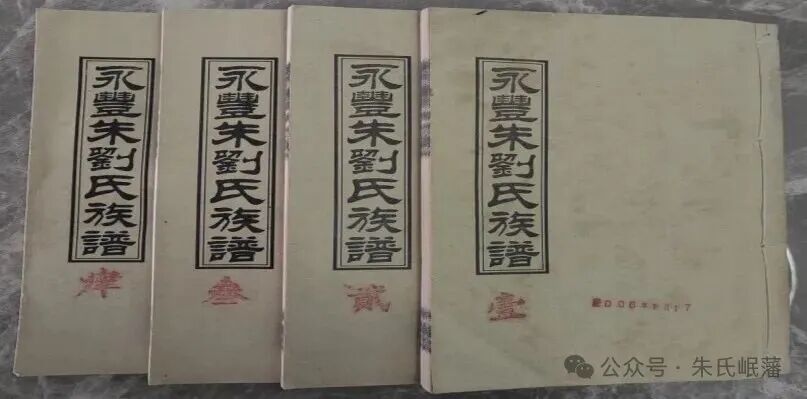 永豐朱劉氏族譜
肆
永豐朱劉氏族譜
叁
永豐朱劉氏族譜
貳
永豐朱劉氏族譜
壹
公众号·朱氏岷藩